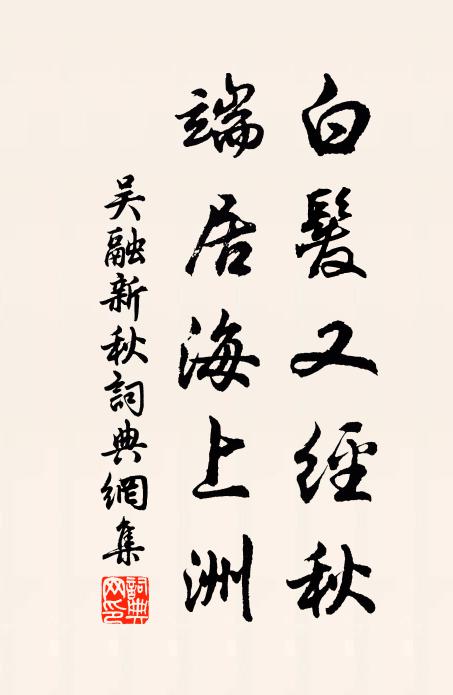 白髮又經秋
端居海上洲
吳融新秋詞典網集
詞典網印